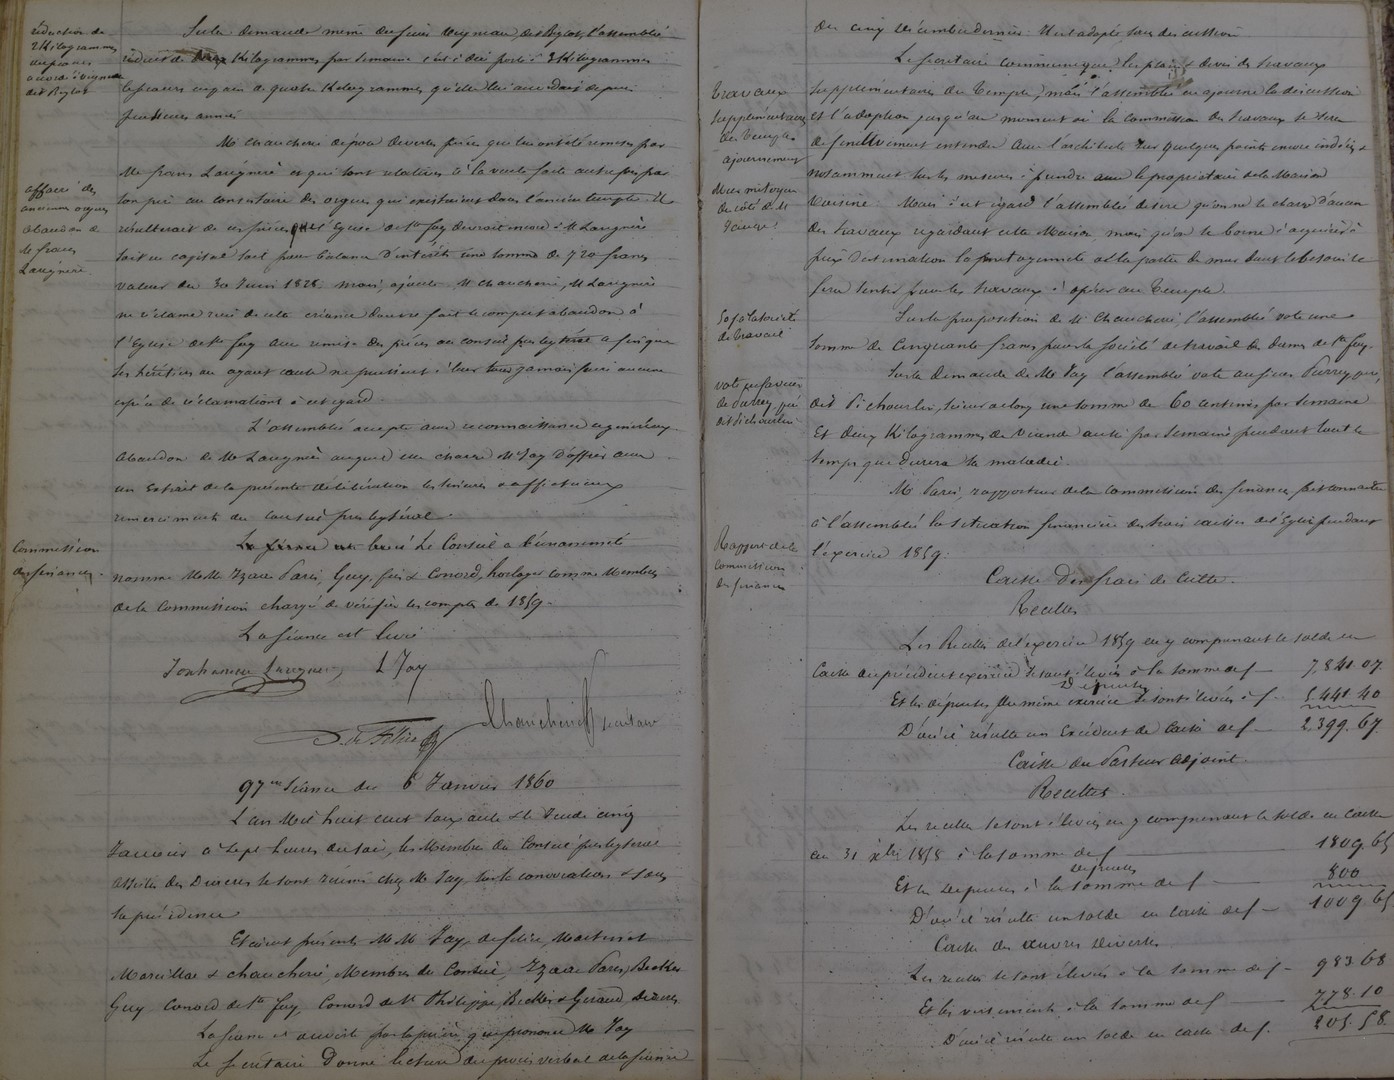 réduction de
2 Kilogrammes
Sur la demande même du sieur Veyneau, dit Reglat, l'assemblée
réduit de deux Kilogrammes par semaine c'est à dire porté à 2 Kilogrammes
le secours en pain de quatre Kilogrammes qu'elle lui accordait depuis
plusieurs années
affaire des
anciennes orgues
abandon de
Mr frans
Lavignère.
Mr Chaucherie dépose diverses pièces qui lui ont été remises par
Mr frans Lavignère et qui sont relatives à la vente faite autrefois par
son père au consistoire des orgues qui existaient dans l'ancien temple. Il
résulterait de ces pièces que l'Eglise de Ste foy devrait encore à Mr Lavignère
soit en capital soit pour balance d'intérêts une somme de 720 francs
valeur du 30 Juin 1828 mais, ajoute Mr Chaucherie, Mr Lavignère
ne réclame rien de cette créance dont il fait le complet abandon à
l'Eglise de Ste foy avec remise des pièces au conseil presbytéral afin que
ses héritiers ou ayant cause ne puissent à leur tour jamais faire aucune
espèce de réclamations à cet égard.
L'assemblée accepte avec reconnaissance ce généreux
abandon de Mr Lavignère auquel elle charge Mr Jay d'offrir avec
un extrait de la présente délibération les sincères & affectueux
remerciments du conseil presbytéral.
Commission
des finances.
La séance est levée Le Conseil à l'unanimité
nomme MM. Izaac Paris, Guy, fils & Conord, horloger comme Membres
de la Commission chargée de vérifier les comptes de 1859.
La séance est levée
L Jay
Chaucherie Secrétaire
De Félice
97me Séance du 6 Janvier 1860
L'an Mil huit cent soixante & le Jeudi cinq
Janvier à sept heures du soir, les Membres du Conseil presbytéral
assistés des Diacres se sont réunis chez Mr Jay, sur la convocation & sous
sa présidence
Etaient présents MM. Jay, de félice, Martinet
Mareilhac & Chaucherie, Membres du Conseil, Izaac Paris, Becker
Guy Conord de Ste foy, Conord de St Philippe, Becker & Geraud, Diacres
La séance est ouverte par la prière que prononce Mr Jay
Le secrétaire donne lecture du procès verbal de la séance
du cinq décembre dernier. Il est adopté sans discussion
Travaux
supplémentaires
du Temple.
ajournement
Mur mitoyen
du côté de Mr
Le secrétaire communique les plans & devis des travaux
supplémentaires du Temple, mais l'assemblée en ajourne la discussion
et l'adoption jusqu'au moment où la commission des travaux se sera
définitivement entendue avec l'architecte sur quelques points encore indécis &
notamment sur les mesures à prendre avec le propriétaire de la Maison
voisine. Mais à cet égard l'assemblée désire qu'on ne se charge d'aucun
des travaux regardant cette Maison, mais qu'on se borne à acquérir à
prix d'estimation la mitoyenneté de la partie de mur dont le besoin se
fera sentir pour les travaux à opérer au Temple.
50f à la société
de travail
Sur la proposition de Mr Chaucherie, l'assemblée vote une
somme de Cinquante francs pour la société de travail des dames de Ste foy.
vote en faveur
de Purrey, père
dit Pichourlin
Sur la demande de Mr Jay l'assemblée vote au sieur Purrey, père,
dit Pichourlin, scieur de long une somme de 60 centimes par semaine
et deux Kilogrammes de viande aussi par semaine pendant tout le
temps que durera sa maladie.
Rapport de la
commission
des finances
Mr Paris, rapporteur de la commission des finances, fait connaître
à l'assemblée la situation financière des trois caisses de l'Eglise pendant
l'exercice 1859.
Caisse des frais de Culte.
Recettes
Les Recettes de l'exercice 1859 en y comprenant le solde en
Caisse du précédent exercice se sont élevées à la somme de f 7,841.07
Dépenses
Et les dépenses du même exercice se sont élevées à f. 5.441 40
D'où il résulte un Excédent de Caisse de f 2,399.67.
Caisse du Pasteur adjoint.
Recettes.
Les recettes se sont élevées en y comprenant le solde en Caisse
au 31 xbre 1858 à la somme de f 1809.65
dépenses
Et les dépenses à la somme de f 800
D'où il résulte un solde en caisse de f 1009.65
Caisse des œuvres diverses
Les recettes se sont élevées à la somme de f 983.68
Et les versements à la somme de f 778.10
D'où il résulte un solde en caisse de f. 205.58